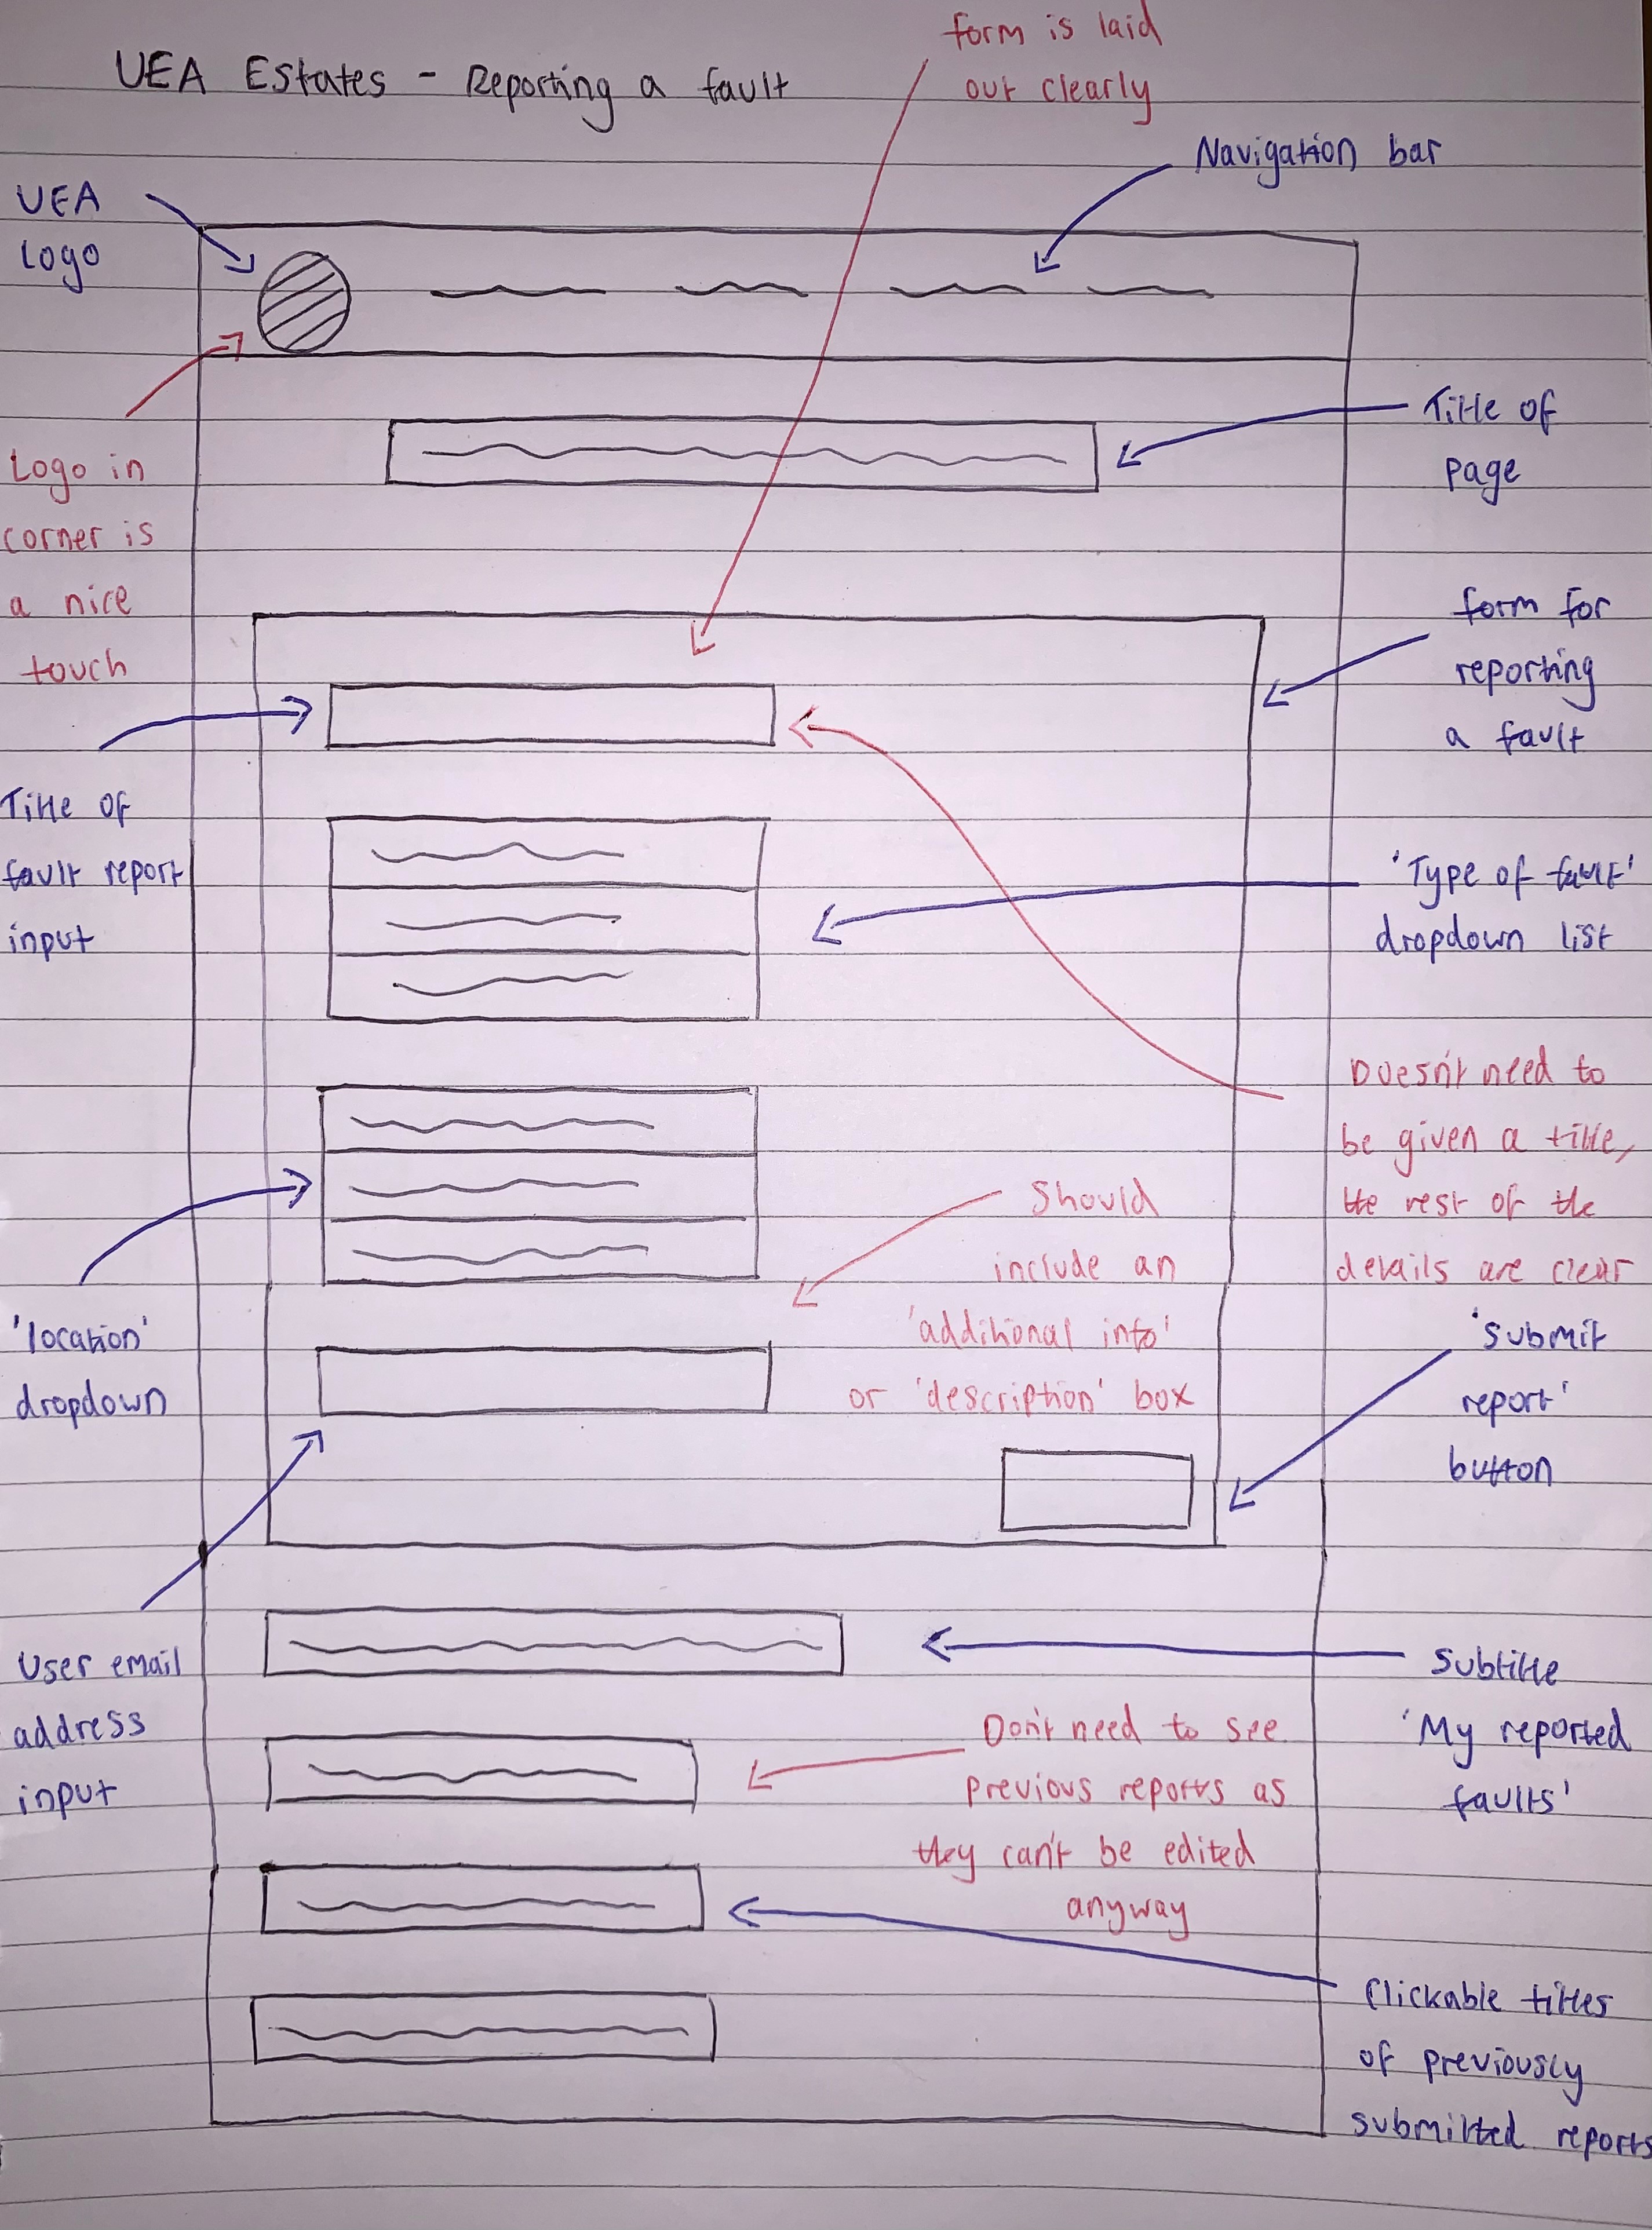 UEA Estates - Reporting a fault
form is laid
out clearly
Navigation bar
UEA
logo
Logo in
corner is
a nice
touch
Title of
page
form for
reporting
a fault
Title of
fault report
input
'Type of fault'
dropdown list
Doesn't need to
be given a title,
the rest of the
details are clear
Should
include an
'additional info'
or 'description' box
'location'
dropdown
'submit
report'
button
User email
address
input
Subtitle
'My reported
faults'
Don't need to see
previous reports as
they can't be edited
anyway
Clickable titles
of previously
submitted reports